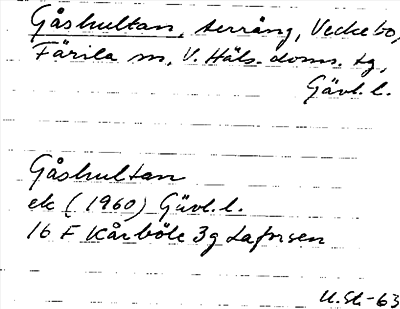 Gåshultan, terräng, Veckebo,
Färila sn, V. Häls. doms. tg,
Gävl. l.
Gåshultan
ek (1960) Gävl. l.
16 F Kårböle 3g Laforsen
U.St-63